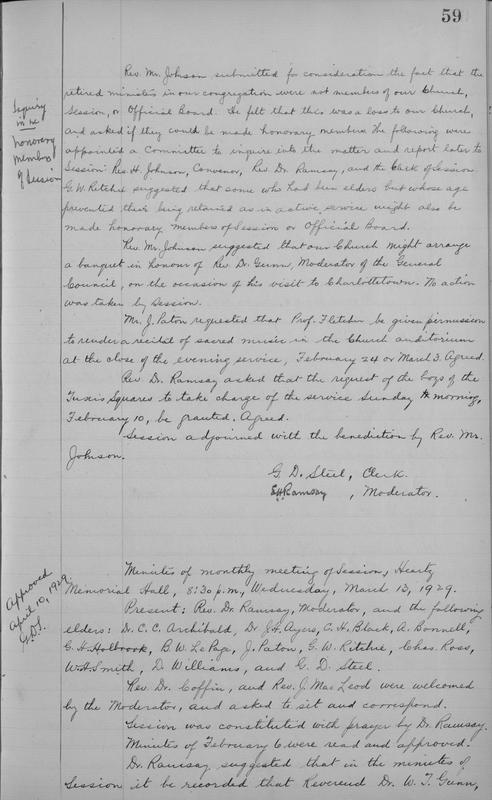 59
Rev. Mr. Johnson submitted for consideration the fact that the
retired ministers in our congregation were not members of our Church,
Session, or Official Board. He felt that this was a loss to our Church,
and asked if they could be made honorary members. The following were
appointed a Committee to inquire into the matter and report later to
Session: Rev. H. Johnson, Convenor, Rev. Dr. Ramsay, and the Clerk of Session.
G. W. Ritchie suggested that some who had been elders but whose age
prevented their being retained as in active service might also be
made honorary members of Session or Official Board.
Inquiry
in re
honorary
members
of Session
Rev. Mr. Johnson suggested that our Church might arrange
a banquet in honour of Rev. Dr. Gunn, Moderator of the General
Council, on the occasion of his visit to Charlottetown. No action
was taken by Session.
Mr. J. Paton requested that Prof. Fletcher be given permission
to render a recital of sacred music in the Church auditorium
at the close of the evening service, February 24 or March 3. Agreed.
Rev. Dr. Ramsay asked that the request of the boys of the
Tuxis Squares to take charge of the service Sunday morning,
February 10, be granted. Agreed.
Session adjourned with the benediction by Rev. Mr.
Johnson.
G. D. Steel, Clerk.
Ramsay, Moderator.
Approved
April 10, 1929.
G.D.S.
Minutes of monthly meeting of Session, Heartz
Memorial Hall, 8:30 p.m., Wednesday, March 13, 1929.
Present: Rev. Dr. Ramsay, Moderator, and the following
elders: Dr. C. C. Archibald, Dr. J. H. Ayers, C. H. Black, A. Bonnell,
G. H. Holbrook, B. W. LePage, J. Paton, G. W. Ritchie, Chas. Ross,
W. H. Smith, D. Williams, and G. D. Steel.
Rev. Dr. Coffin, and Rev. J. MacLeod were welcomed
by the Moderator, and asked to sit and correspond.
Session was constituted with prayer by Dr. Ramsay.
Minutes of February 6 were read and approved.
Dr. Ramsay suggested that in the minutes of
Session it be recorded that Reverend Dr. W. T. Gunn,